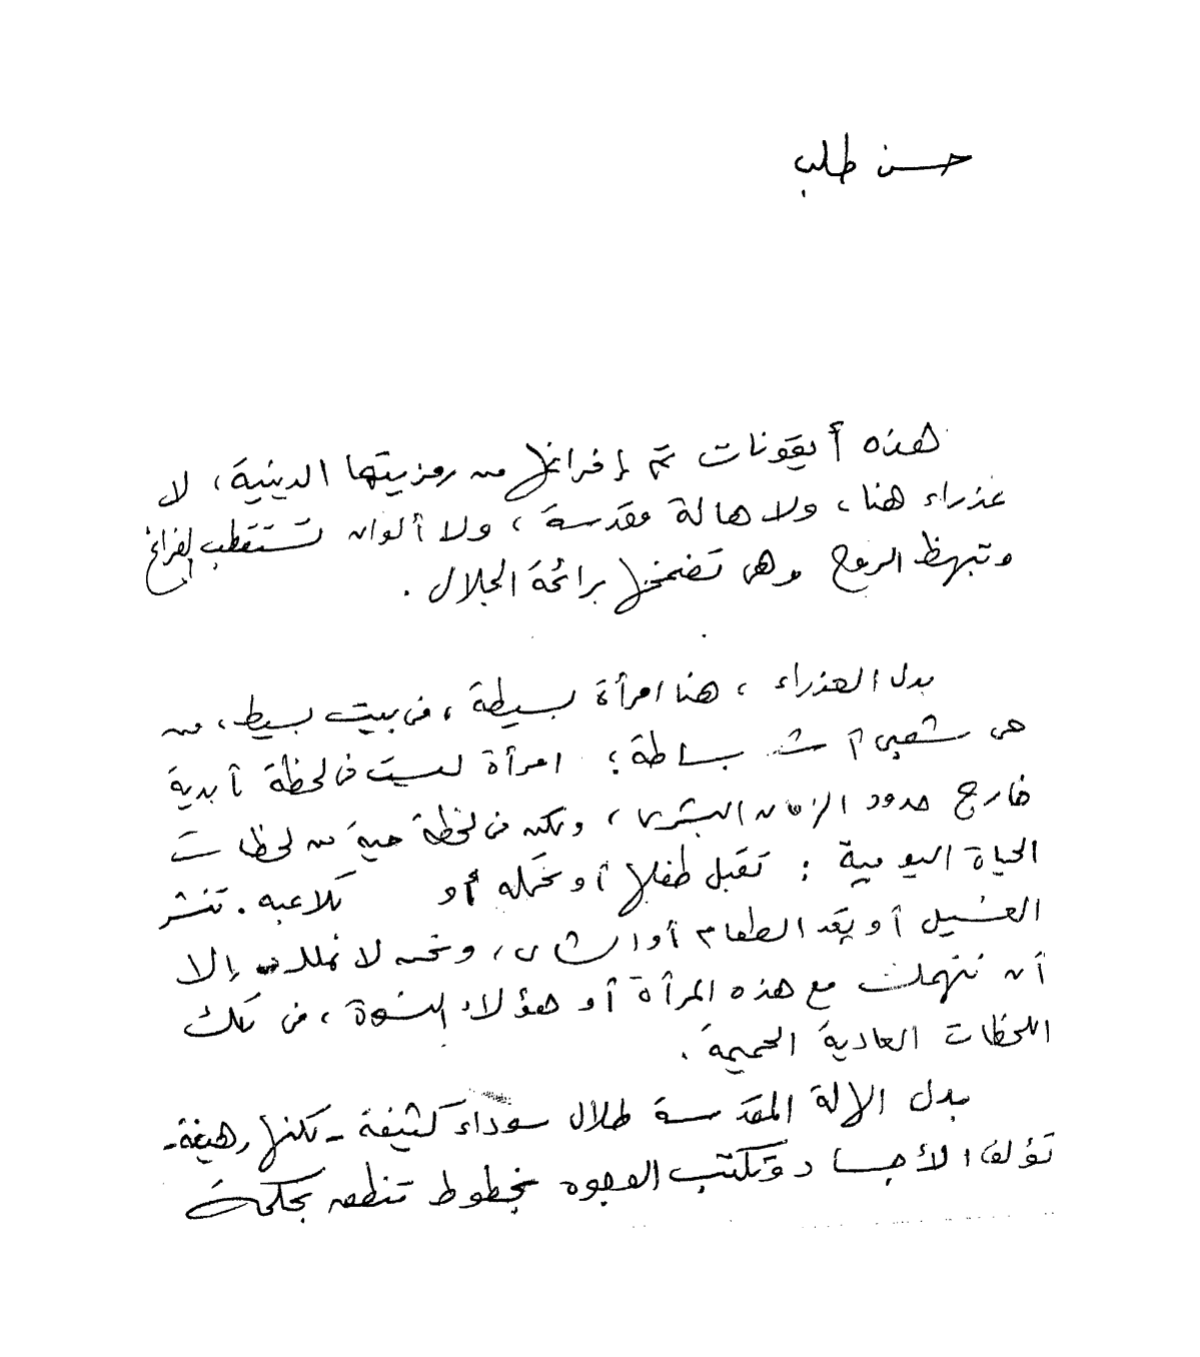 حسن طلب
هذه أيقونات تم إفراغها من رمزيتها الدينية، لا
عذراء هنا، ولا هالة مقدسة، ولا ألوان تستقطب الفراغ
وتبهظ الروح وهى تضمخها برائحة الجلال.
بدل العذراء، هنا امرأة بسيطة، فى بيت بسيط، من
هى شعبى بساطة؛ امرأة ليست فى لحظة أبدية
خارج حدود الزمان البشرى، ولكن فى لحظة حية من لحظات
الحياة اليومية: تقبل طفلها أو تحمله أو تلاعبه. تنشر
الغسيل أو تعد الطعام أو الشاى، ونحن لا نملك إلا
أن ننهمك مع هذه المرأة أو هؤلاء النسوة، فى تلك
اللحظات العادية الحميمة.
بدل الهالة المقدسة ظلال سوداء كثيفة - لكنها رهيفة -
تؤلف الأجساد وتكتب الوجوه بخطوط تنطق بحكمة